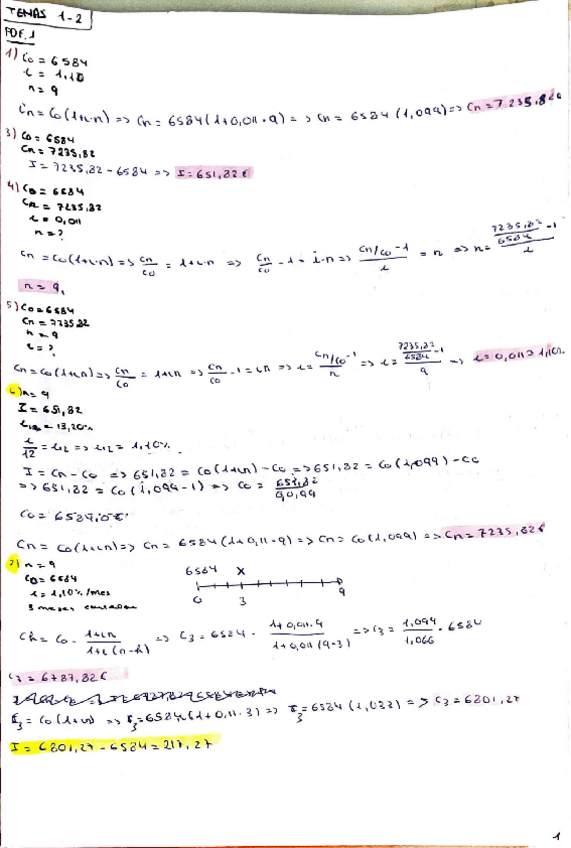 TEMAS 1-2
PDF.1
1) C0 = 6584
i = 1,10
n = 9
Cn = C0(1+i·n) => Cn = 6584(1+0,011·9) => Cn = 6584(1,099) => Cn = 7235,82€
3) C0 = 6584
Cn = 7235,82
I = 7235,82 - 6584 => I = 651,82€
4) C0 = 6584
Cn = 7235,82
i = 0,011
n = ?
Cn = C0(1+i·n) => Cn/C0 = 1+i·n => Cn/C0 - 1 = i·n => (Cn/C0 - 1)/i = n => n = (7235,82/6584 - 1)/i
n = 9,
5) C0 = 6584
Cn = 7235,82
n = 9
i = ?
Cn = C0(1+in) => Cn/C0 = 1+in => Cn/C0 - 1 = in => i = (Cn/C0 - 1)/n => i = (7235,82/6584 - 1)/9 => i = 0,011 = 1,10%
6) n = 9
I = 651,82
= 13,20%
i/12 = i12 => i12 = 1,10%
I = Cn - C0 => 651,82 = C0(1+in) - C0 => 651,82 = C0(1,099) - C0
=> 651,82 = C0(1,099 - 1) => C0 = 651,82/0,099
C0 = 6584,0€
Cn = C0(1+in) => Cn = 6584(1+0,11·9) => Cn = C0(1,099) => Cn = 7235,82€
7) n = 9
C0 = 6584
i = 1,10%/mes
3 meses
6584 X
0 3 9
Ch = C0 · (1+in)/(1+i(n-h)) => C3 = 6584 · (1+0,011·9)/(1+0,011(9-3)) => C3 = 1,099/1,066 · 6584
C3 = 6787,82€
I3 = C0(1+in) => I3 = 6584(1+0,11·3) => I3 = 6584(1,033) => C3 = 6801,27
I = 6801,27 - 6584 = 217,27
1